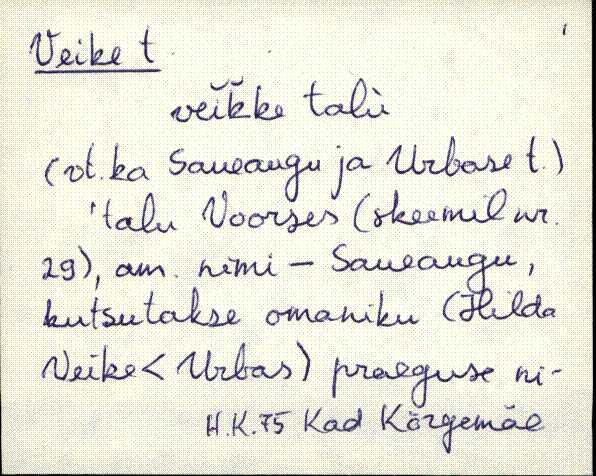 Veike t.
veĭk̆ke talù
(vt. ka Saueaugu ja Urbase t.)
'talu Voorses (skeemil nr.
29), am. nimi – Saueaugu,
kutsutakse omaniku (Hilda
Veike < Urbas) praeguse ni-
H.K. 75 Kad Kõrgemäe